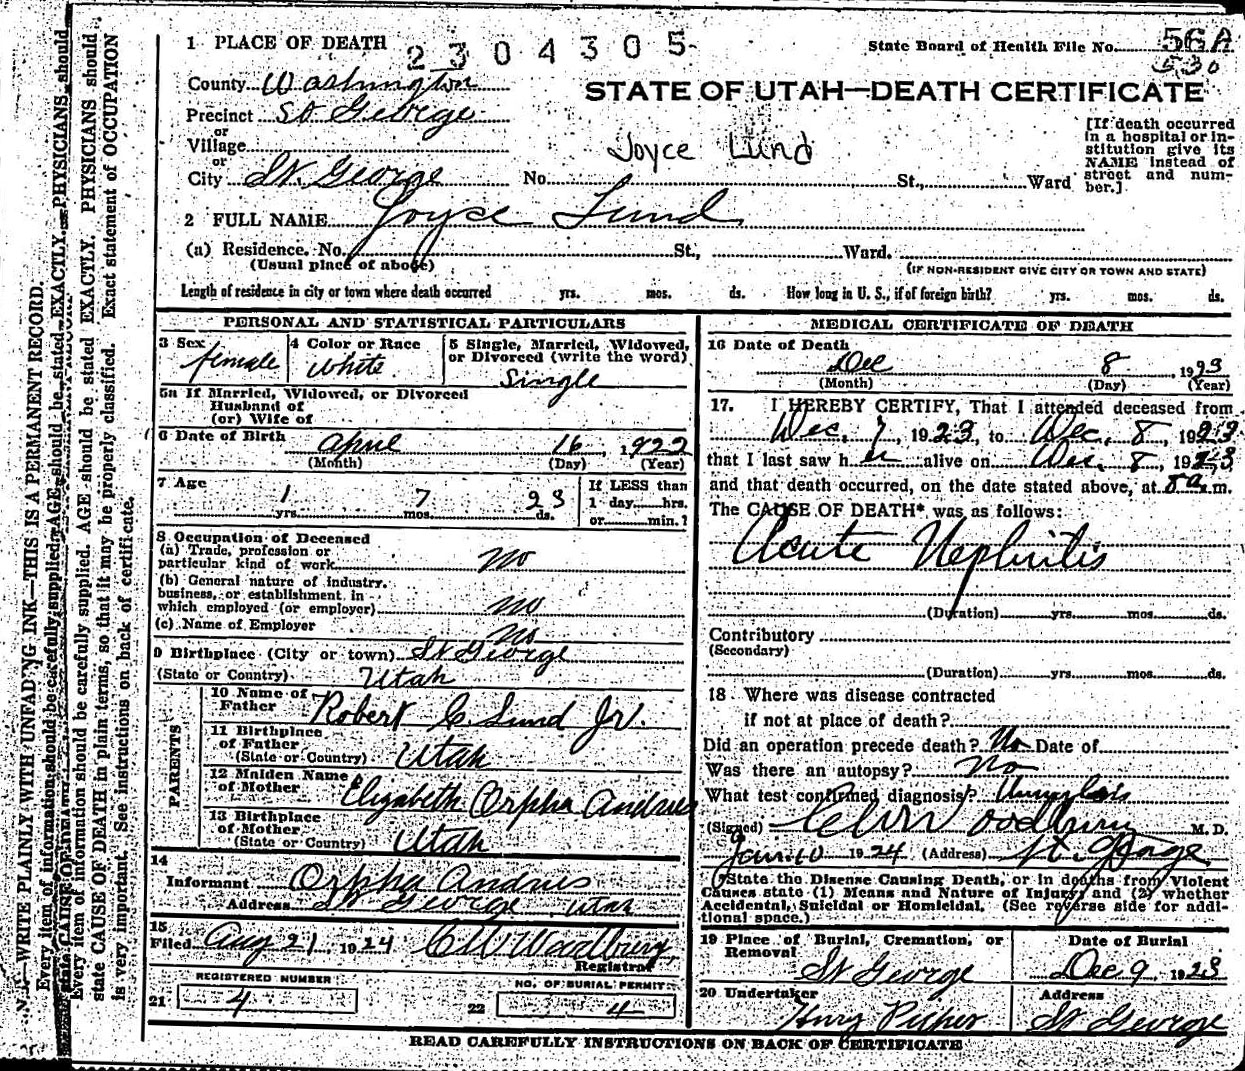 1 PLACE OF DEATH 2304305
State Board of Health File No. 56A
530
County Washington
STATE OF UTAH—DEATH CERTIFICATE
Precinct St George
or
Village
or
City St. George No. St., Ward
Joyce Lund
[If death occurred in a hospital or institution give its NAME instead of street and number.]
2 FULL NAME Joyce Lund
(a) Residence. No. St., Ward.
(Usual place of abode) (IF NON-RESIDENT GIVE CITY OR TOWN AND STATE)
Length of residence in city or town where death occurred yrs. mos. ds. How long in U. S., if of foreign birth? yrs. mos. ds.
PERSONAL AND STATISTICAL PARTICULARS
3 Sex female
4 Color or Race White
5 Single, Married, Widowed, or Divorced (write the word) Single
5a If Married, Widowed, or Divorced
Husband of
(or) Wife of
6 Date of Birth April 16, 1922
(Month) (Day) (Year)
7 Age 1 yrs. 7 mos. 23 ds.
If LESS than
1 day hrs.
or min.?
8 Occupation of Deceased
(a) Trade, profession or
particular kind of work no
(b) General nature of industry,
business, or establishment in
which employed (or employer) no
(c) Name of Employer no
9 Birthplace (City or town) St George
(State or Country) Utah
PARENTS
10 Name of Father Robert C. Lund Jr.
11 Birthplace of Father
(State or Country) Utah
12 Maiden Name of Mother Elizabeth Orpha Andrus
13 Birthplace of Mother
(State or Country) Utah
14
Informant Orpha Andrus
Address St George Utah
15
Filed Aug 21 1924 C W Woodbury
Registrar
REGISTERED NUMBER
21 4
NO. OF BURIAL PERMIT
22 4
MEDICAL CERTIFICATE OF DEATH
16 Date of Death
Dec 8, 1923
(Month) (Day) (Year)
17. I HEREBY CERTIFY, That I attended deceased from
Dec. 7, 1923, to Dec. 8, 1923
that I last saw her alive on Dec. 8, 1923
and that death occurred, on the date stated above, at 8 a.m.
The CAUSE OF DEATH* was as follows:
Acute Nephritis
(Duration) yrs. mos. ds.
Contributory
(Secondary)
(Duration) yrs. mos. ds.
18 Where was disease contracted
if not at place of death?
Did an operation precede death? No Date of
Was there an autopsy? No
What test confirmed diagnosis?
(Signed) C W Woodbury M. D.
Jan. 10 1924 (Address) St. George
(*State the Disease Causing Death, or in deaths from Violent
Causes state (1) Means and Nature of Injury; and (2) whether
Accidental, Suicidal or Homicidal. (See reverse side for additional space.)
19 Place of Burial, Cremation, or Removal St George
Date of Burial
Dec 9 1923
20 Undertaker
Henry
Address
St George
READ CAREFULLY INSTRUCTIONS ON BACK OF CERTIFICATE
—WRITE PLAINLY WITH UNFADING INK—THIS IS A PERMANENT RECORD.
Every item of information should be carefully supplied. AGE should be stated EXACTLY. PHYSICIANS should
Every item of information should be carefully supplied. AGE should be stated EXACTLY. PHYSICIANS should
state CAUSE OF DEATH in plain terms, so that it may be properly classified. Exact statement of OCCUPATION
is very important. See instructions on back of certificate.